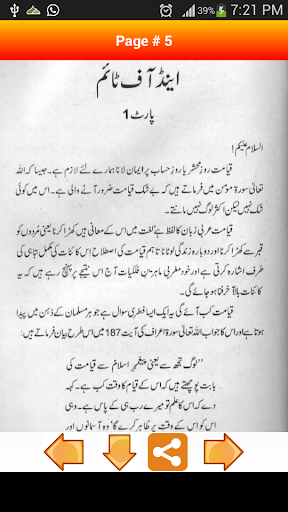 39% 7:21 PM
Page # 5
اینڈ آف ٹائم
پارٹ 1
السلام علیکم!
قیامت روزِ محشر یا روزِ حساب پر ایمان لانا ہمارے لئے لازم ہے۔ جیسا کہ اللہ
تعالیٰ سورۃ مؤمن میں فرماتے ہیں کہ بے شک قیامت ضرور آنے والی ہے۔ اس میں کوئی
شک نہیں لیکن اکثر لوگ نہیں مانتے۔
قیامت عربی زبان کا لفظ ہے لغت میں اس کے معانی ہیں کھڑا کرنا یعنی مُردوں کو
قبر سے کھڑا کرنا اور دوبارہ زندگی لوٹانا تاہم قیامت کی اصطلاح اس کائنات کی مکمل تباہی کی
طرف اشارہ کرتی ہے اور خود مغربی ماہرینِ فلکیات آج اس نتیجے پر پہنچ رہے ہیں کہ یہ
کائنات بالآخر فنا ہو جائے گی۔
قیامت کب آئے گی یہ ایک ایسا فطری سوال ہے جو ہر مسلمان کے ذہن میں پیدا
ہوتا ہے اور اس کا جواب اللہ تعالیٰ سورۃ اعراف کی آیت 187 میں اس طرح بیان فرماتے ہیں:
"لوگ تجھ سے یعنی پیغمبرِ اسلام سے قیامت کی
بابت پوچھتے ہیں کہ اس کے قیام کا وقت کب ہے۔ کہہ
دے کہ اس کا علم تو میرے رب ہی کے پاس ہے۔ وہی
اس کو اس کے وقت پر ظاہر کرے گا وہ آسمانوں اور